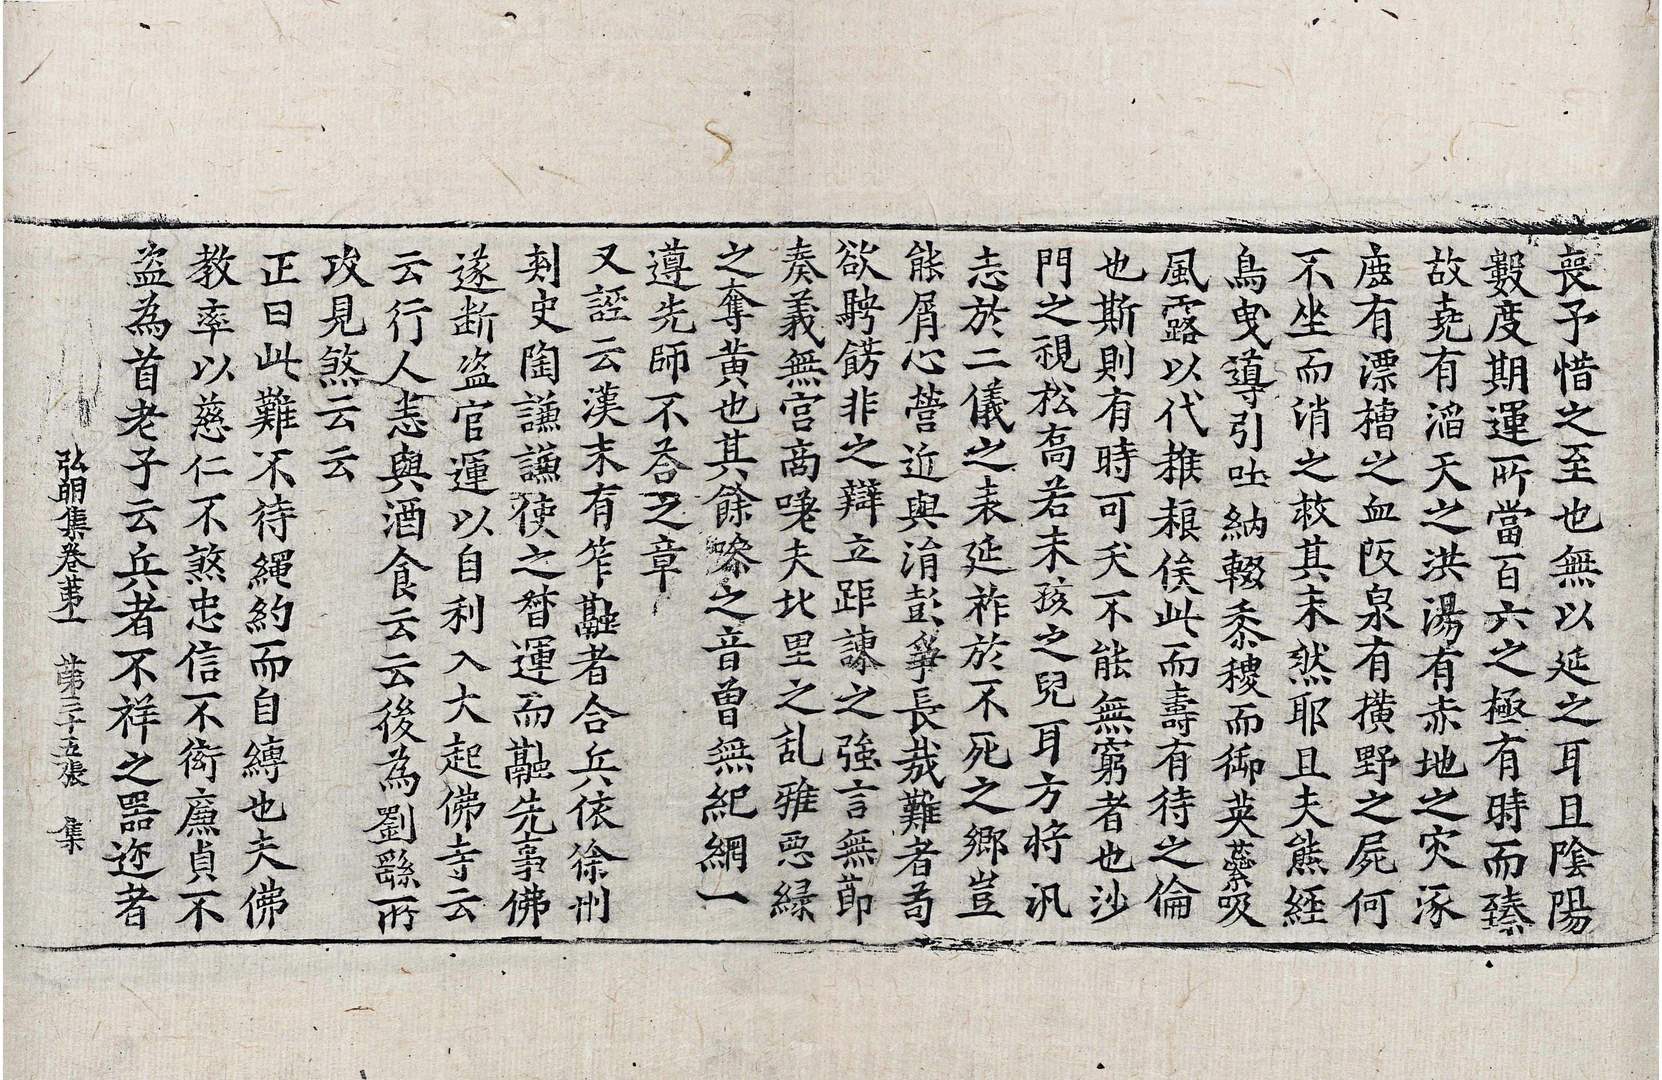 喪予惜之至也無以延之耳且陰陽
數度期運所當百六之極有時而臻
故堯有滔天之洪湯有赤地之灾涿
鹿有漂櫓之血阪泉有橫野之屍何
不坐而消之救其未然耶且夫熊經
鳥曳導引吐納輟黍稷而御英蘂吸
風露以代糇粮俟此而壽有待之倫
也斯則有時可夭不能無窮者也沙
門之視松高若未孩之兒耳方將汎
志於二儀之表延祚於不死之鄉豈
能屑心營近與涓彭爭長哉難者苟
欲騁飾非之辯立距諫之強言無節
奏義無宮商嗟夫北里之乱雅惡緑
之奪黃也其餘嘹之音曾無紀綱一
遵先師不荅之章
又誣云漢末有笮融者合兵依徐州
刺史陶謙謙使之督運而融先事佛
遂断盗官運以自利入大起佛寺云
云行人悉與酒食云云後為劉繇所
攻見煞云云
正曰此難不待繩約而自縛也夫佛
教率以慈仁不煞忠信不衒廉貞不
盗為首老子云兵者不祥之器迩者
弘明集卷苐一 苐三十五張 集